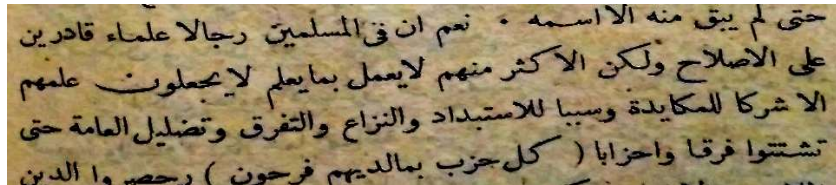 حتى لم يبق منه الا اسمه • نعم ان فى المسلمين رجالا علماء قادرين
على الاصلاح ولكن الاكثر منهم لايعمل بمايعلم لايجعلون علمهم
الا شركا للمكايدة وسببا للاستبداد والنزاع والتفرق وتضليل العامة حتى
تشتتوا فرقا واحزابا ( كل حزب بمالديهم فرحون ) وحصروا الدين